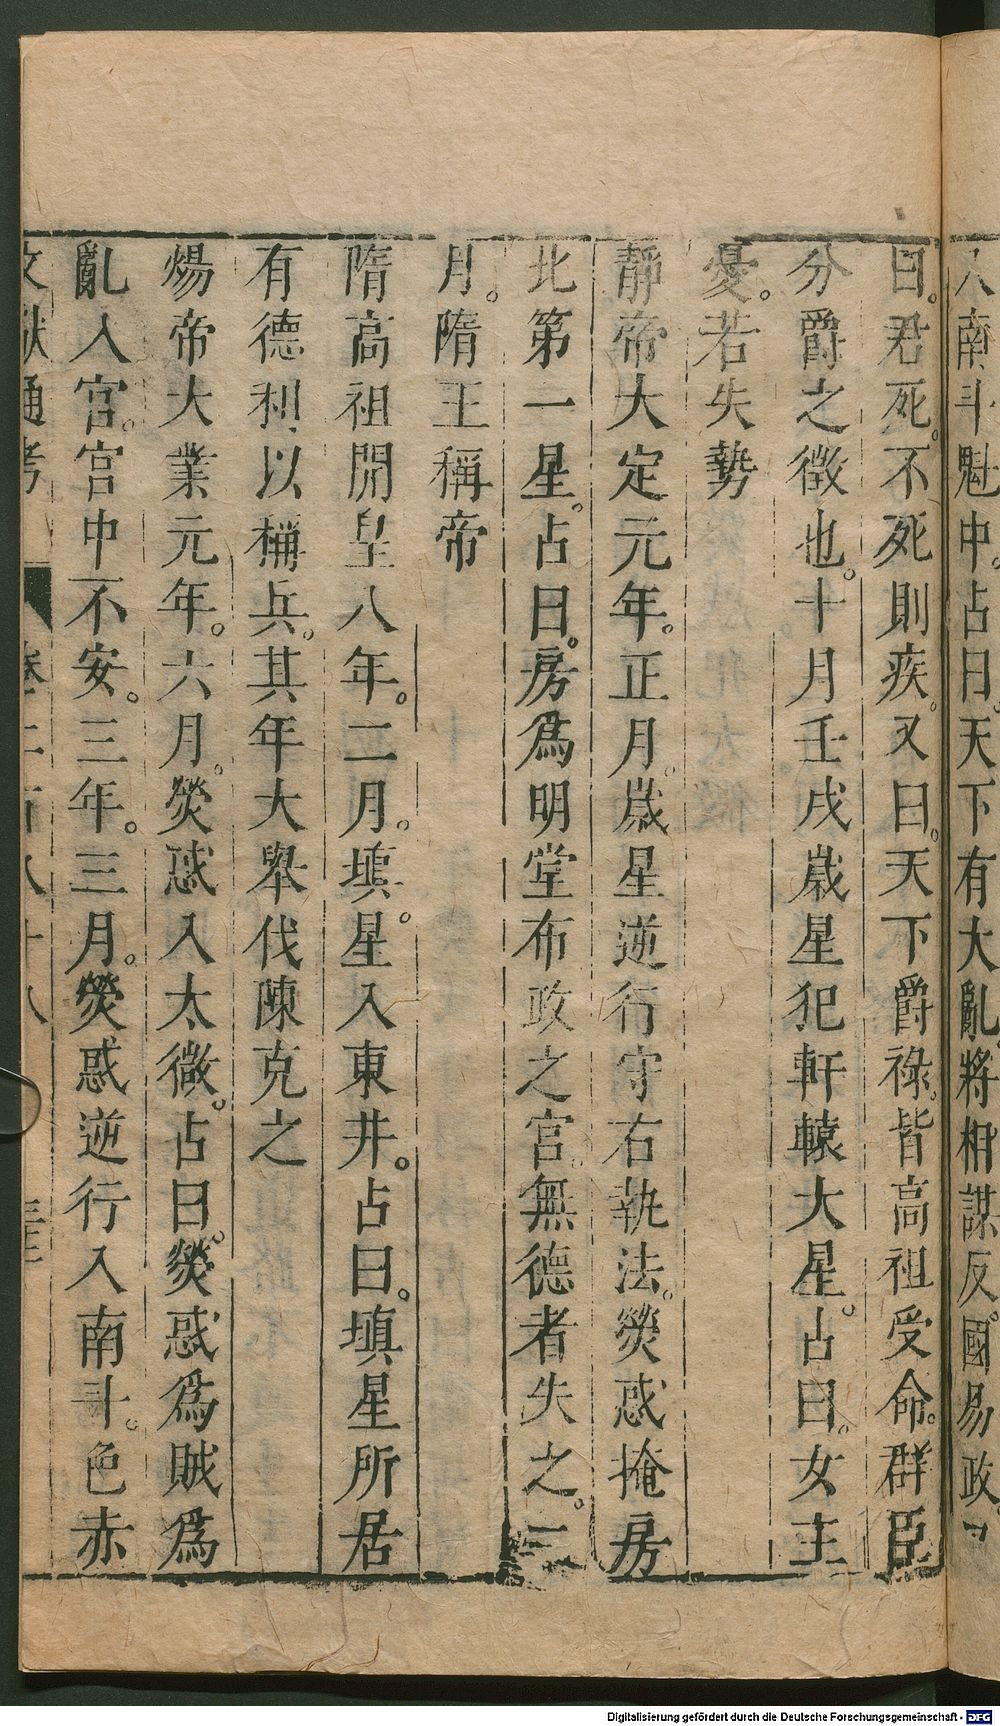 南斗魁中。占曰。天下有大亂。將相謀反。國易政。
曰。君死。不死則疾。又曰。天下爵祿。皆高祖受命。群臣
分爵之徵也。十月壬戌歲星犯軒轅大星。占曰。女主
憂。若失勢
靜帝大定元年。正月。歲星逆行守右執法。熒惑掩房
北第一星。占曰。房爲明堂布政之宮。無德者失之。二
月。隋王稱帝
隋高祖開皇八年。二月。塡星入東井。占曰。塡星所居
有德利以稱兵。其年大舉伐陳克之
煬帝大業元年。六月。熒惑入太微。占曰。熒惑爲賊爲
亂入宮。宮中不安。三年。三月。熒惑逆行入南斗。色赤
文獻通考 卷二百八十八
Digitalisierung gefördert durch die Deutsche Forschungsgemeinschaft - DFG